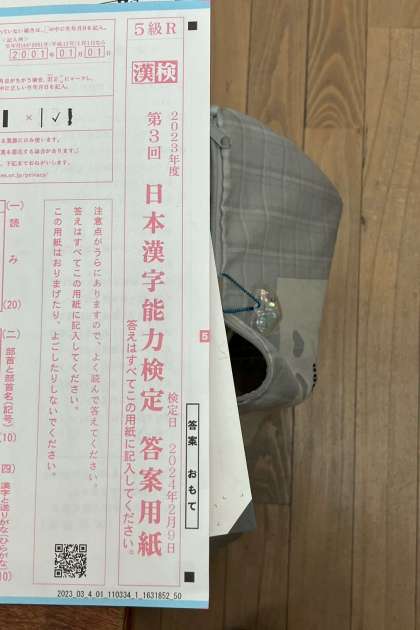 5級R
漢検
2023年度
第3回 日本漢字能力検定 答案用紙
検定日 2024年2月9日
答えはすべてこの用紙に記入してください。
答案 おもて
5
注意点がうらにありますので、よく読んで答えてください。
答えはすべてこの用紙に記入してください。
この用紙はおりまげたり、よごしたりしないでください。
2001年01月01日
(一)
読み
(20)
(二)
部首と部首名(記号)
(10)
(四)
漢字と送りがな(ひらがな)
2023_03_4_01_110334_1_1631852_50